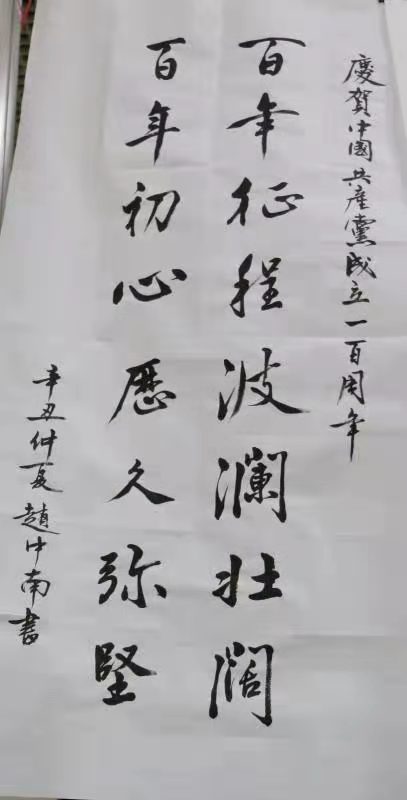 慶賀中國共産黨成立一百周年
百年征程波瀾壮阔
百年初心歷久弥堅
辛丑仲夏趙中南書